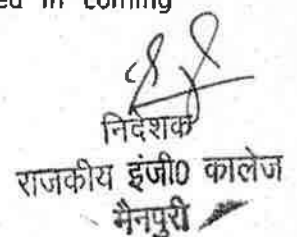 ed in coming
निदेशक
राजकीय इंजी0 कालेज
मैनपुरी